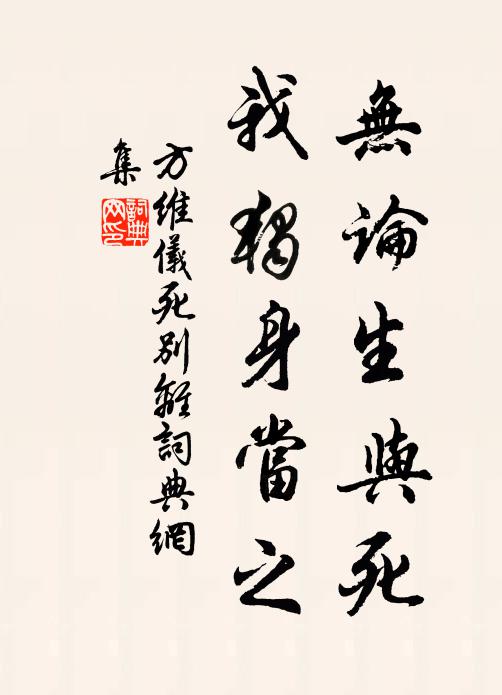 無論生與死
我獨身當之
方維儀死別離詞典網
集
詞典
网印